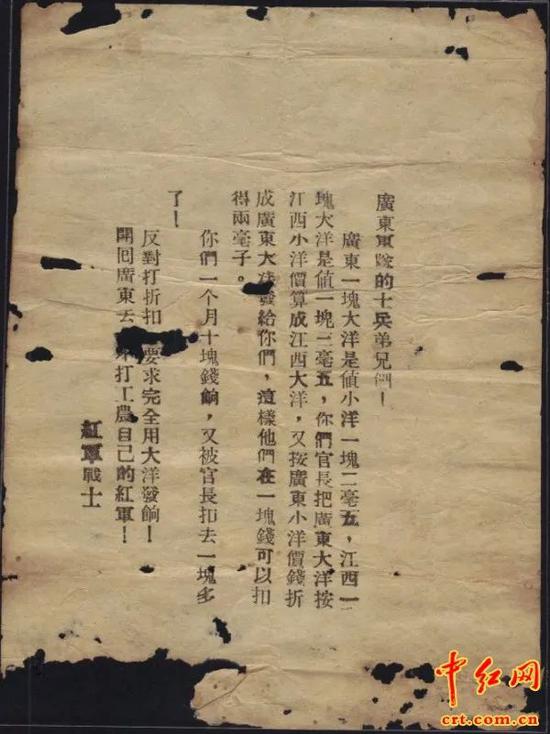 廣東軍隊的士兵弟兄們！
廣東一塊大洋是值小洋一塊二毫五，江西一
塊大洋是值一塊三毫五，你們官長把廣東大洋按
江西小洋價算成江西大洋，又按廣東小洋價錢折
成廣東大洋發給你們，這樣他們在一塊錢可以扣
得兩毫子。
你們一个月十塊錢餉，又被官長扣去一塊多
了！
反對打折扣 要求完全用大洋發餉！
開回廣東去 打工農自己的紅軍！
紅軍戰士
中红网
crt.com.cn